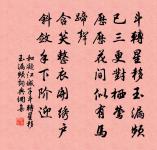 斗轉星移玉漏頻
已三更對栖鶯
歷歷花間似有馬
蹄聲
含笑整衣開繡戶
斜斂手下階迎
和凝江城子斗轉星移
玉漏頻